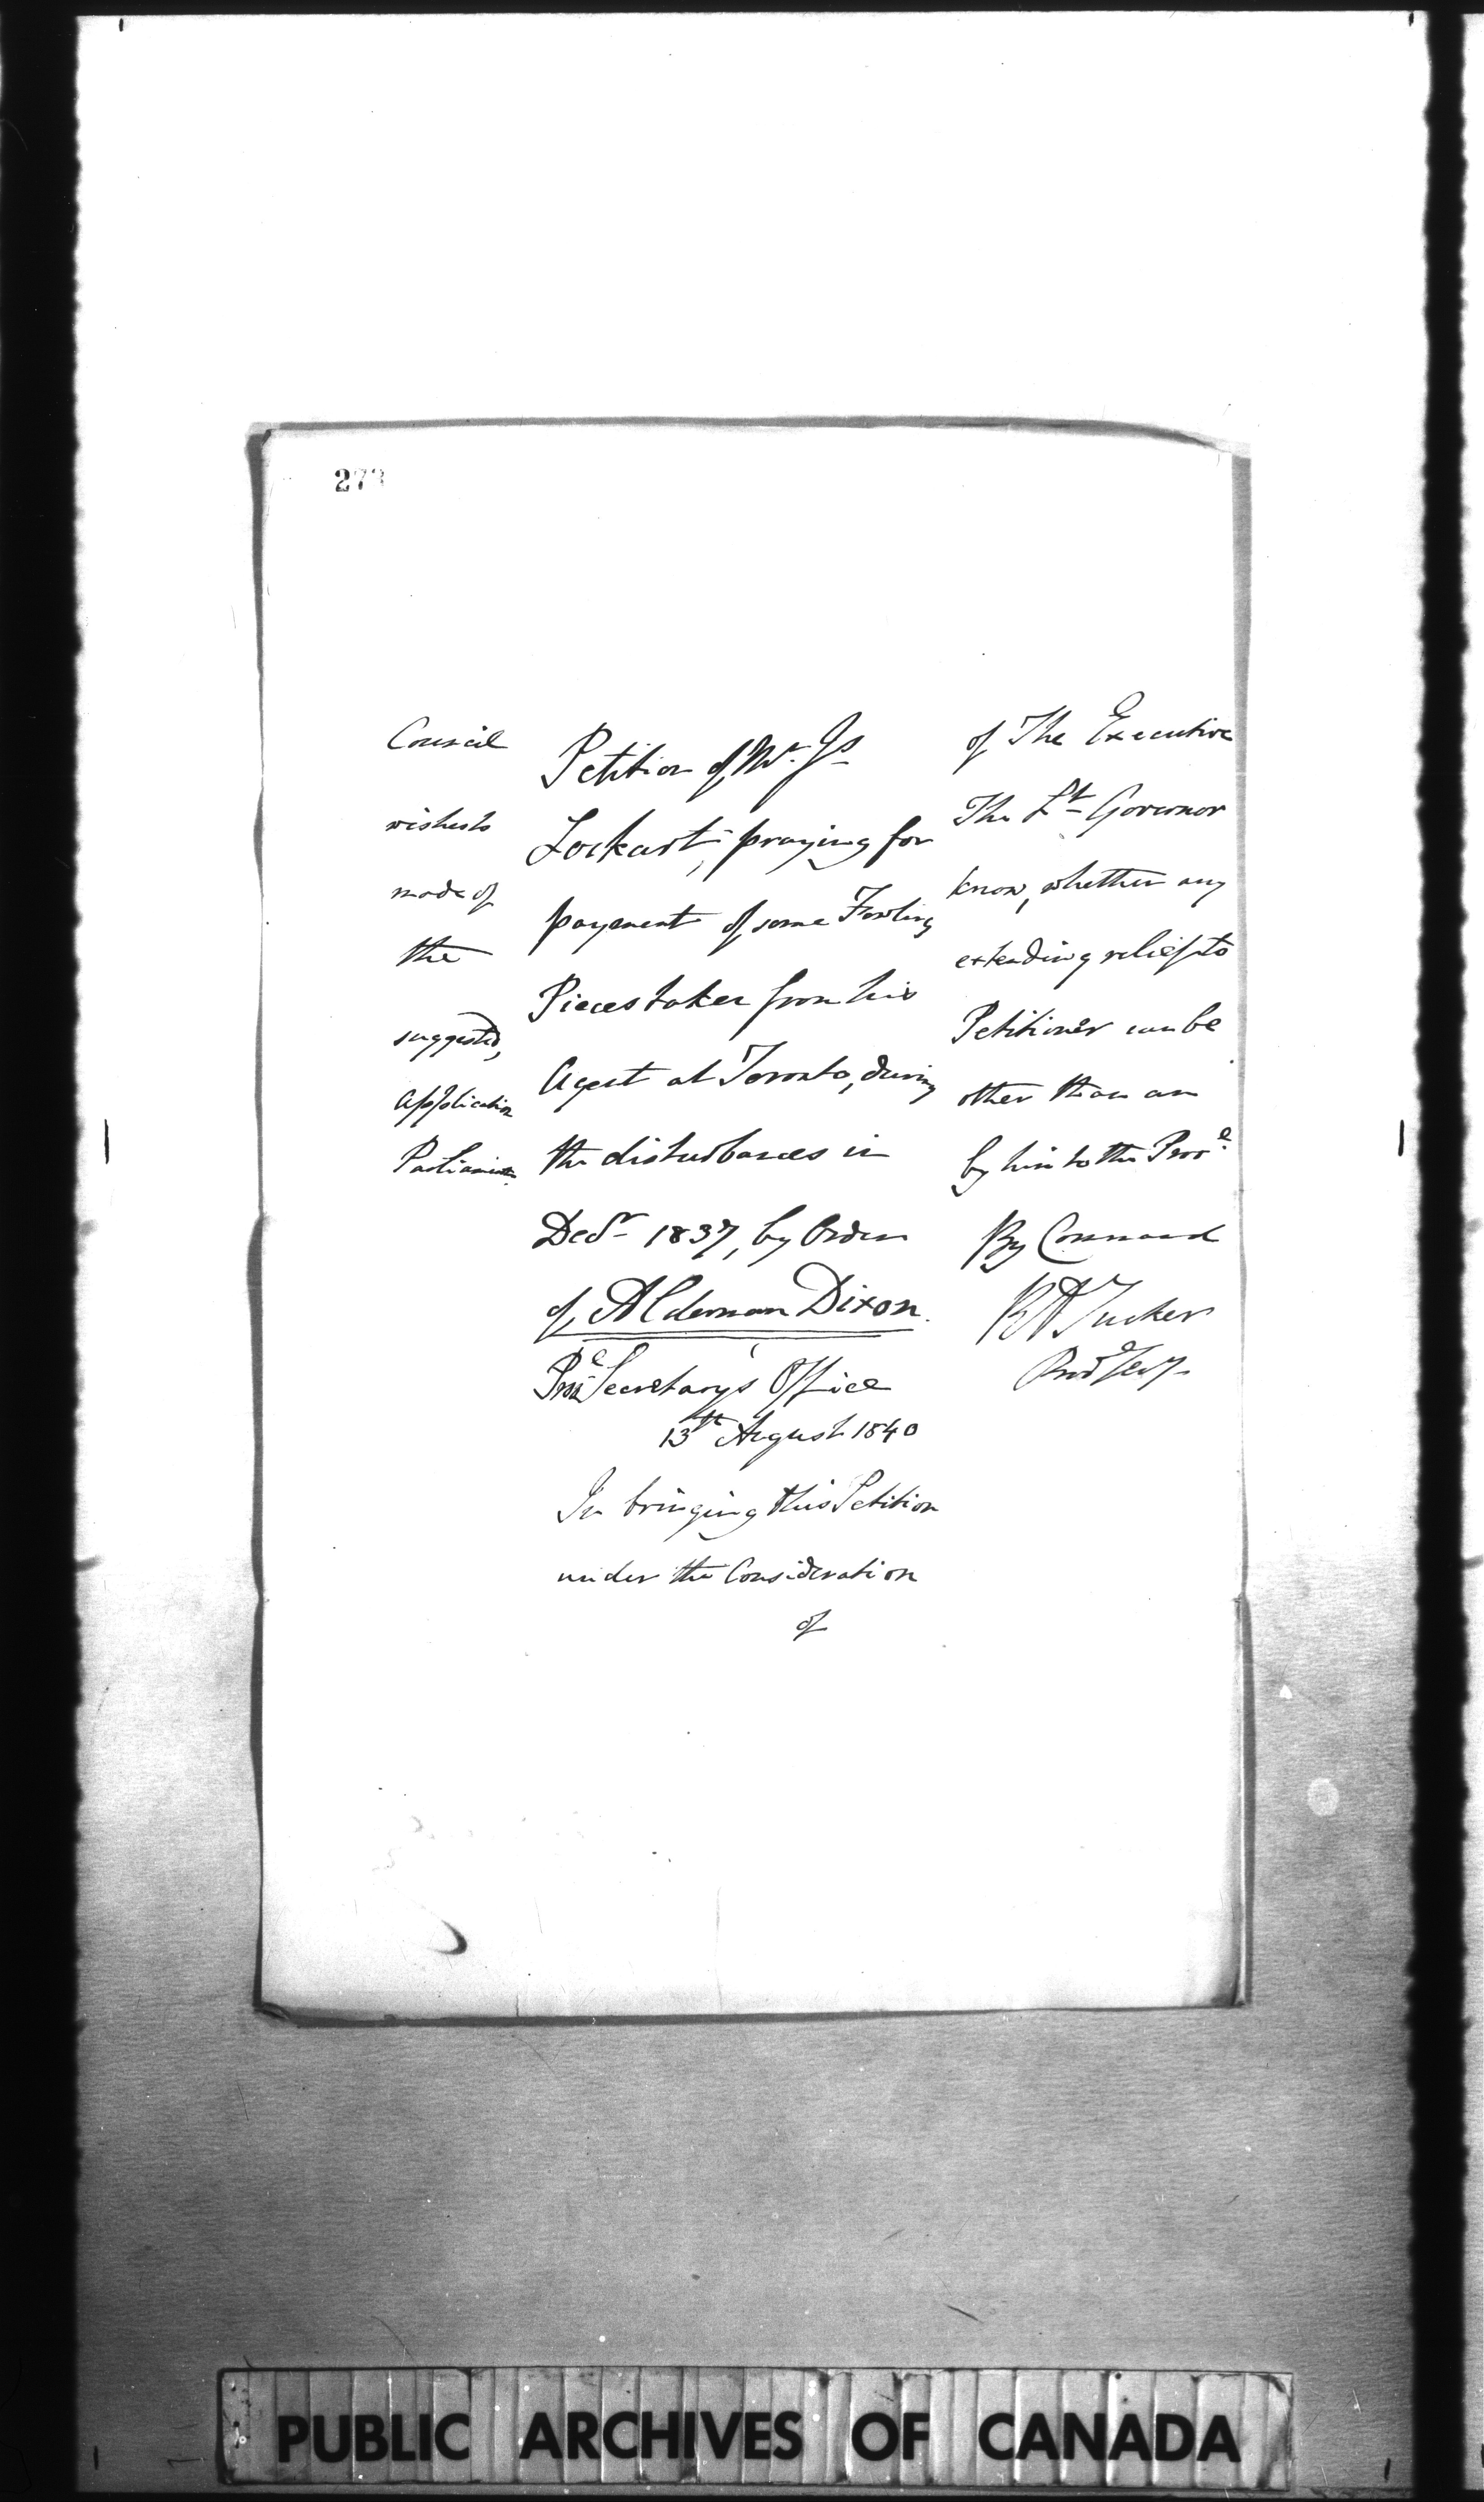 273
Petition of Mr. Js
Lockart, praying for
payment of some Fowling
Pieces taken from his
Agent at Toronto, during
the disturbances in
Decr 1837, by Order
of Alderman Dixon.
Prol Secretary's Office
13th August 1840
In bringing this Petition
under the Consideration
of
of The Executive
Council
The Lt Governor
wishes to
know, whether any
mode of
extending relief to
the
Petitioner can be
suggested,
other than an
Application
by him to the Provl
Parliamt.
By Command
R A Tucker
Prol Secy
PUBLIC ARCHIVES OF CANADA